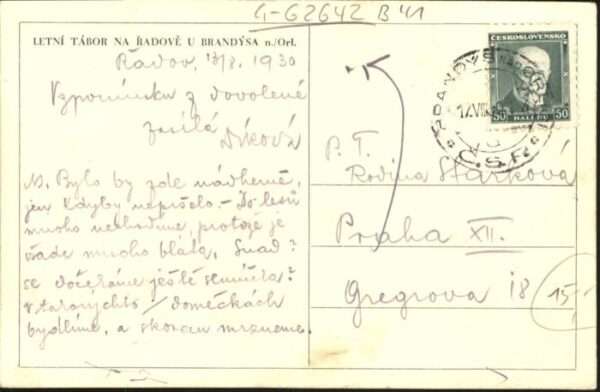 G-G2642 B41
LETNÍ TÁBOR NA ŘADOVĚ U BRANDÝSA n./Orl.
Řadov, 1930
Vzpomínku z dovolené
zasílá Diková
N. Bylo by zde nádherně,
jen kdyby nepršelo. – Do lesů
mnoho nechodíme, protože je
všade mnoho bláta. Snad?
se dočkáme ještě sluníčka?
v domečkách
bydlíme, a skoro mrzneme.
ČESKOSLOVENSKO
50 HALÉŘŮ 50
Č.S.R.
P. T.
Rodina Stárková
Praha XII.
Gregrova 18
15,-